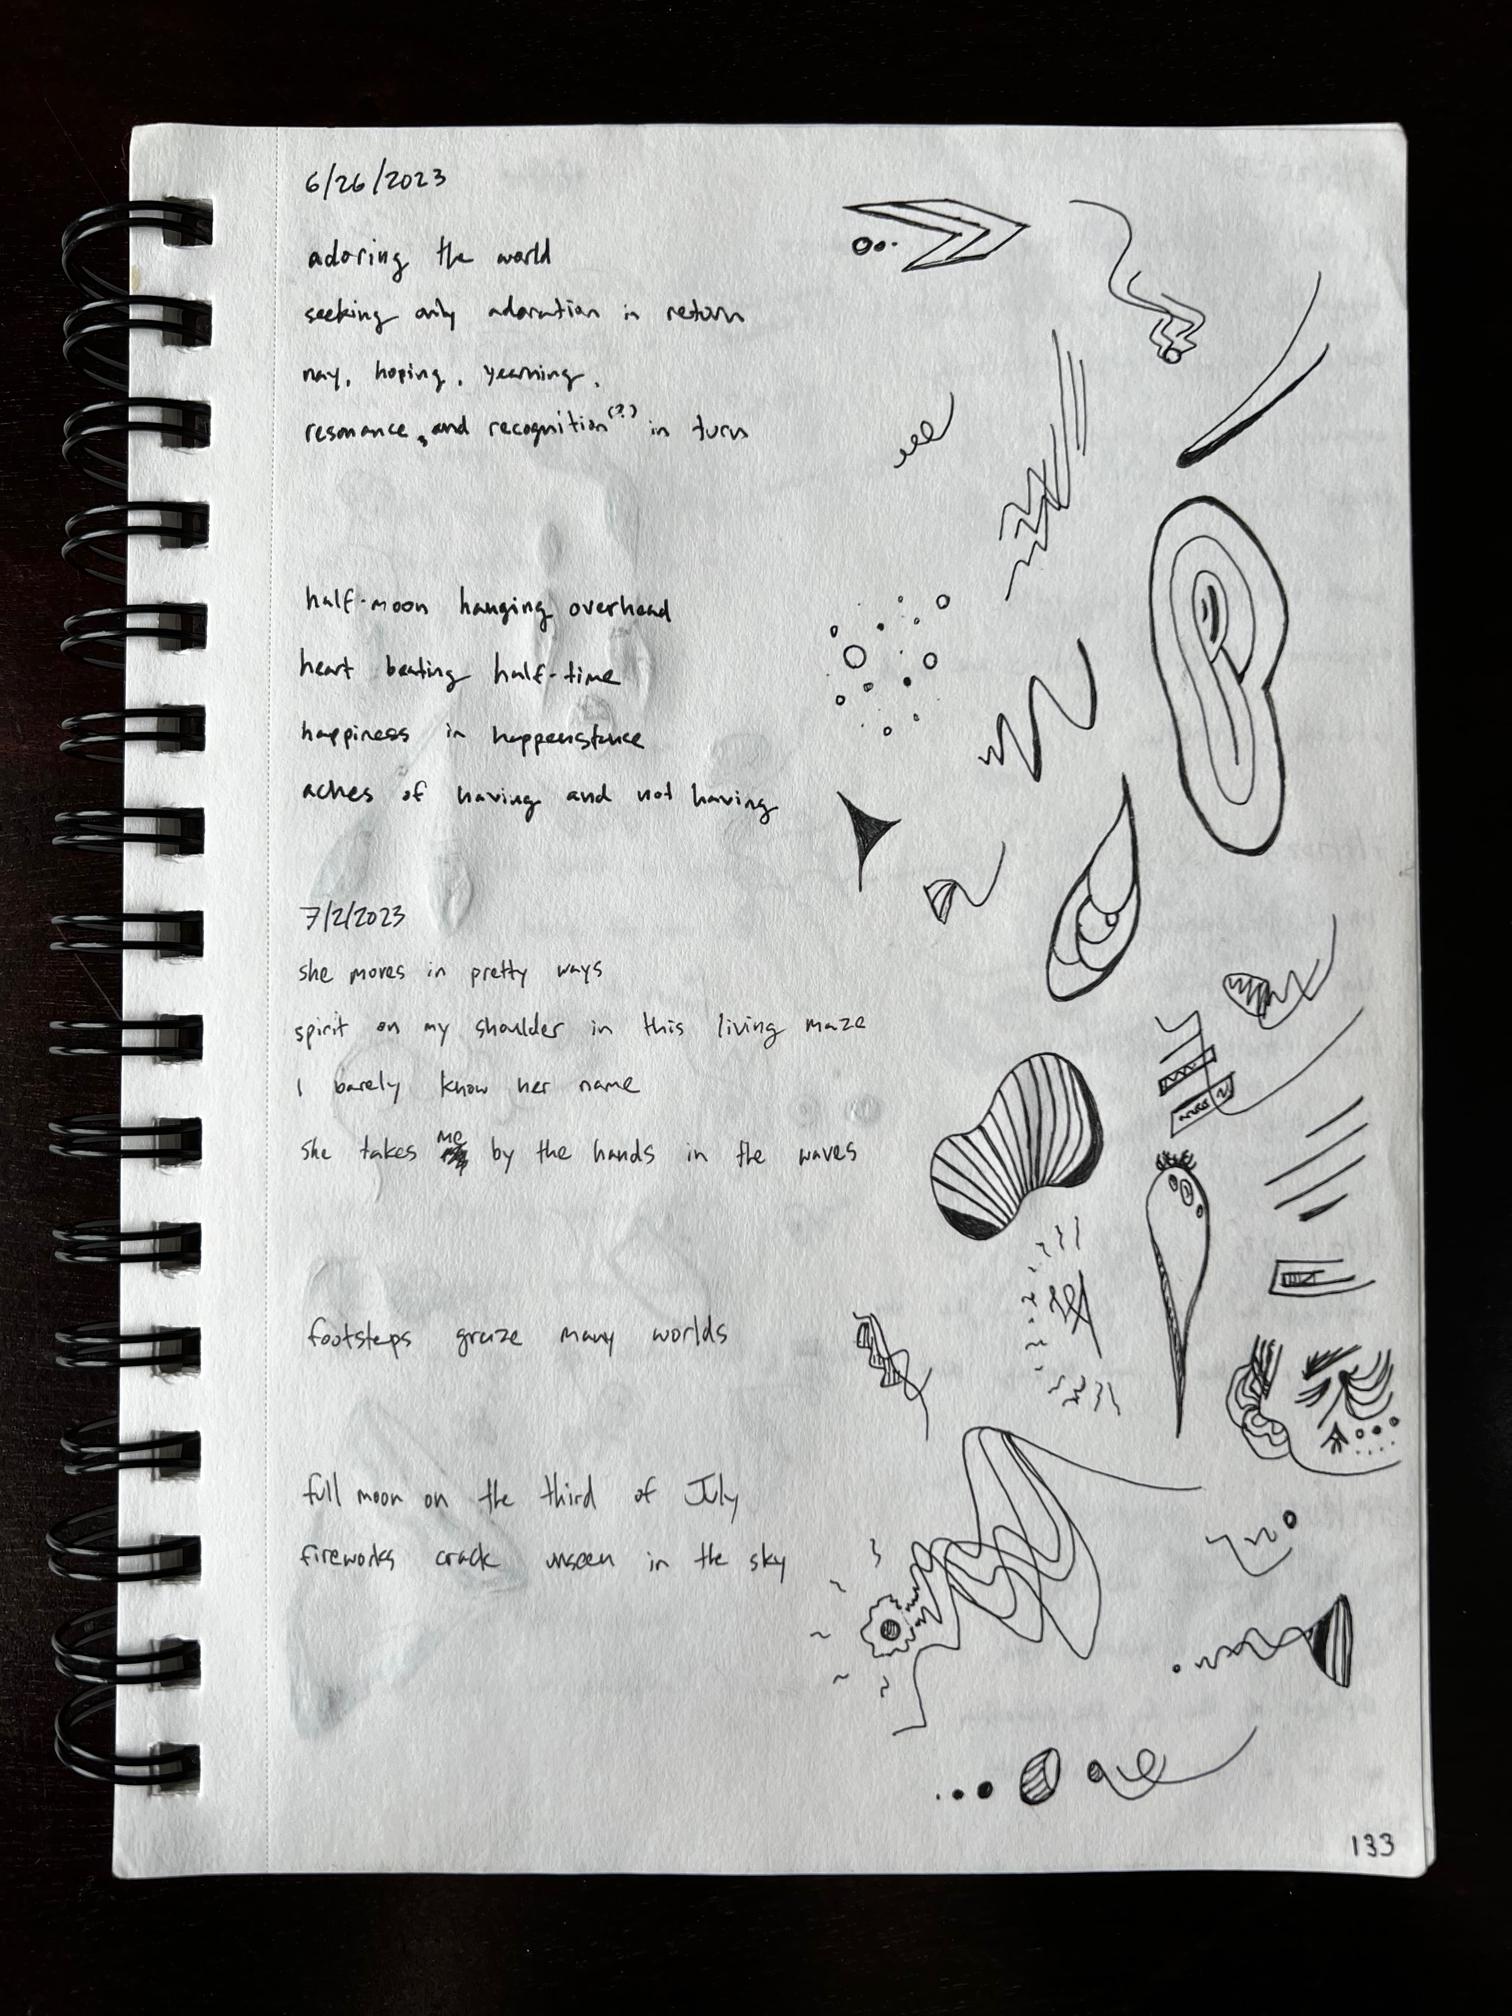 6/26/2023
adoring the world
seeking only adoration in return
nay, hoping, yearning,
resonance, and recognition(?) in turn
half-moon hanging overhead
heart beating half-time
happiness in happenstance
aches of having and not having
7/2/2023
she moves in pretty ways
spirit on my shoulder in this living maze
I barely know her name
she takes me by the hands in the waves
footsteps graze many worlds
full moon on the third of July
fireworks crack unseen in the sky
133